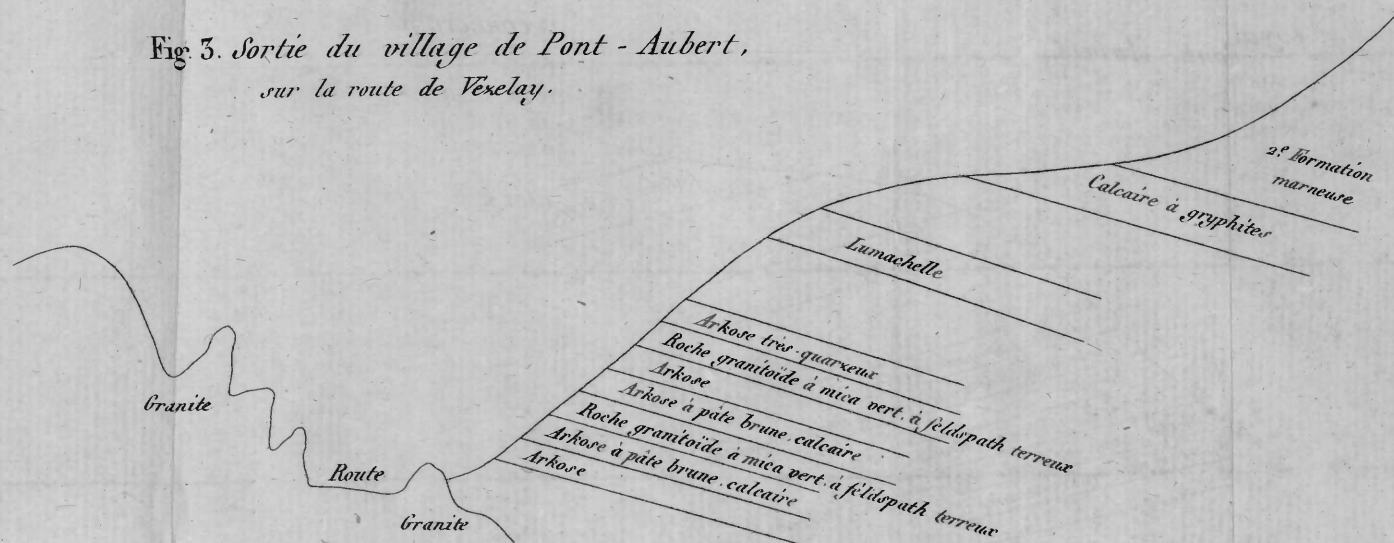 Fig. 3. Sortie du village de Pont-Aubert,
sur la route de Vezelay.
2.e Formation
marneuse
Calcaire à gryphites
Lumachelle
Arkose très-quarzeux
Roche granitoïde à mica vert. à feldspath terreux
Arkose
Arkose à pâte brune. calcaire
Roche granitoïde à mica vert. à feldspath terreux
Arkose à pâte brune. calcaire
Arkose
Granite
Route
Granite